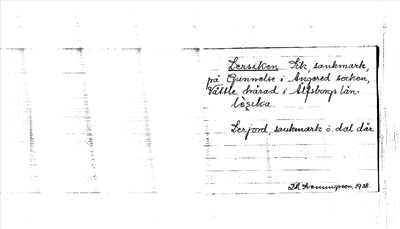 Lersiken Sk, sankmark,
på Gunnelse i Angered socken,
Vättle härad i Älfsborgs län.
lèsika.
Lerjord, sankmark o. dal där
1918.